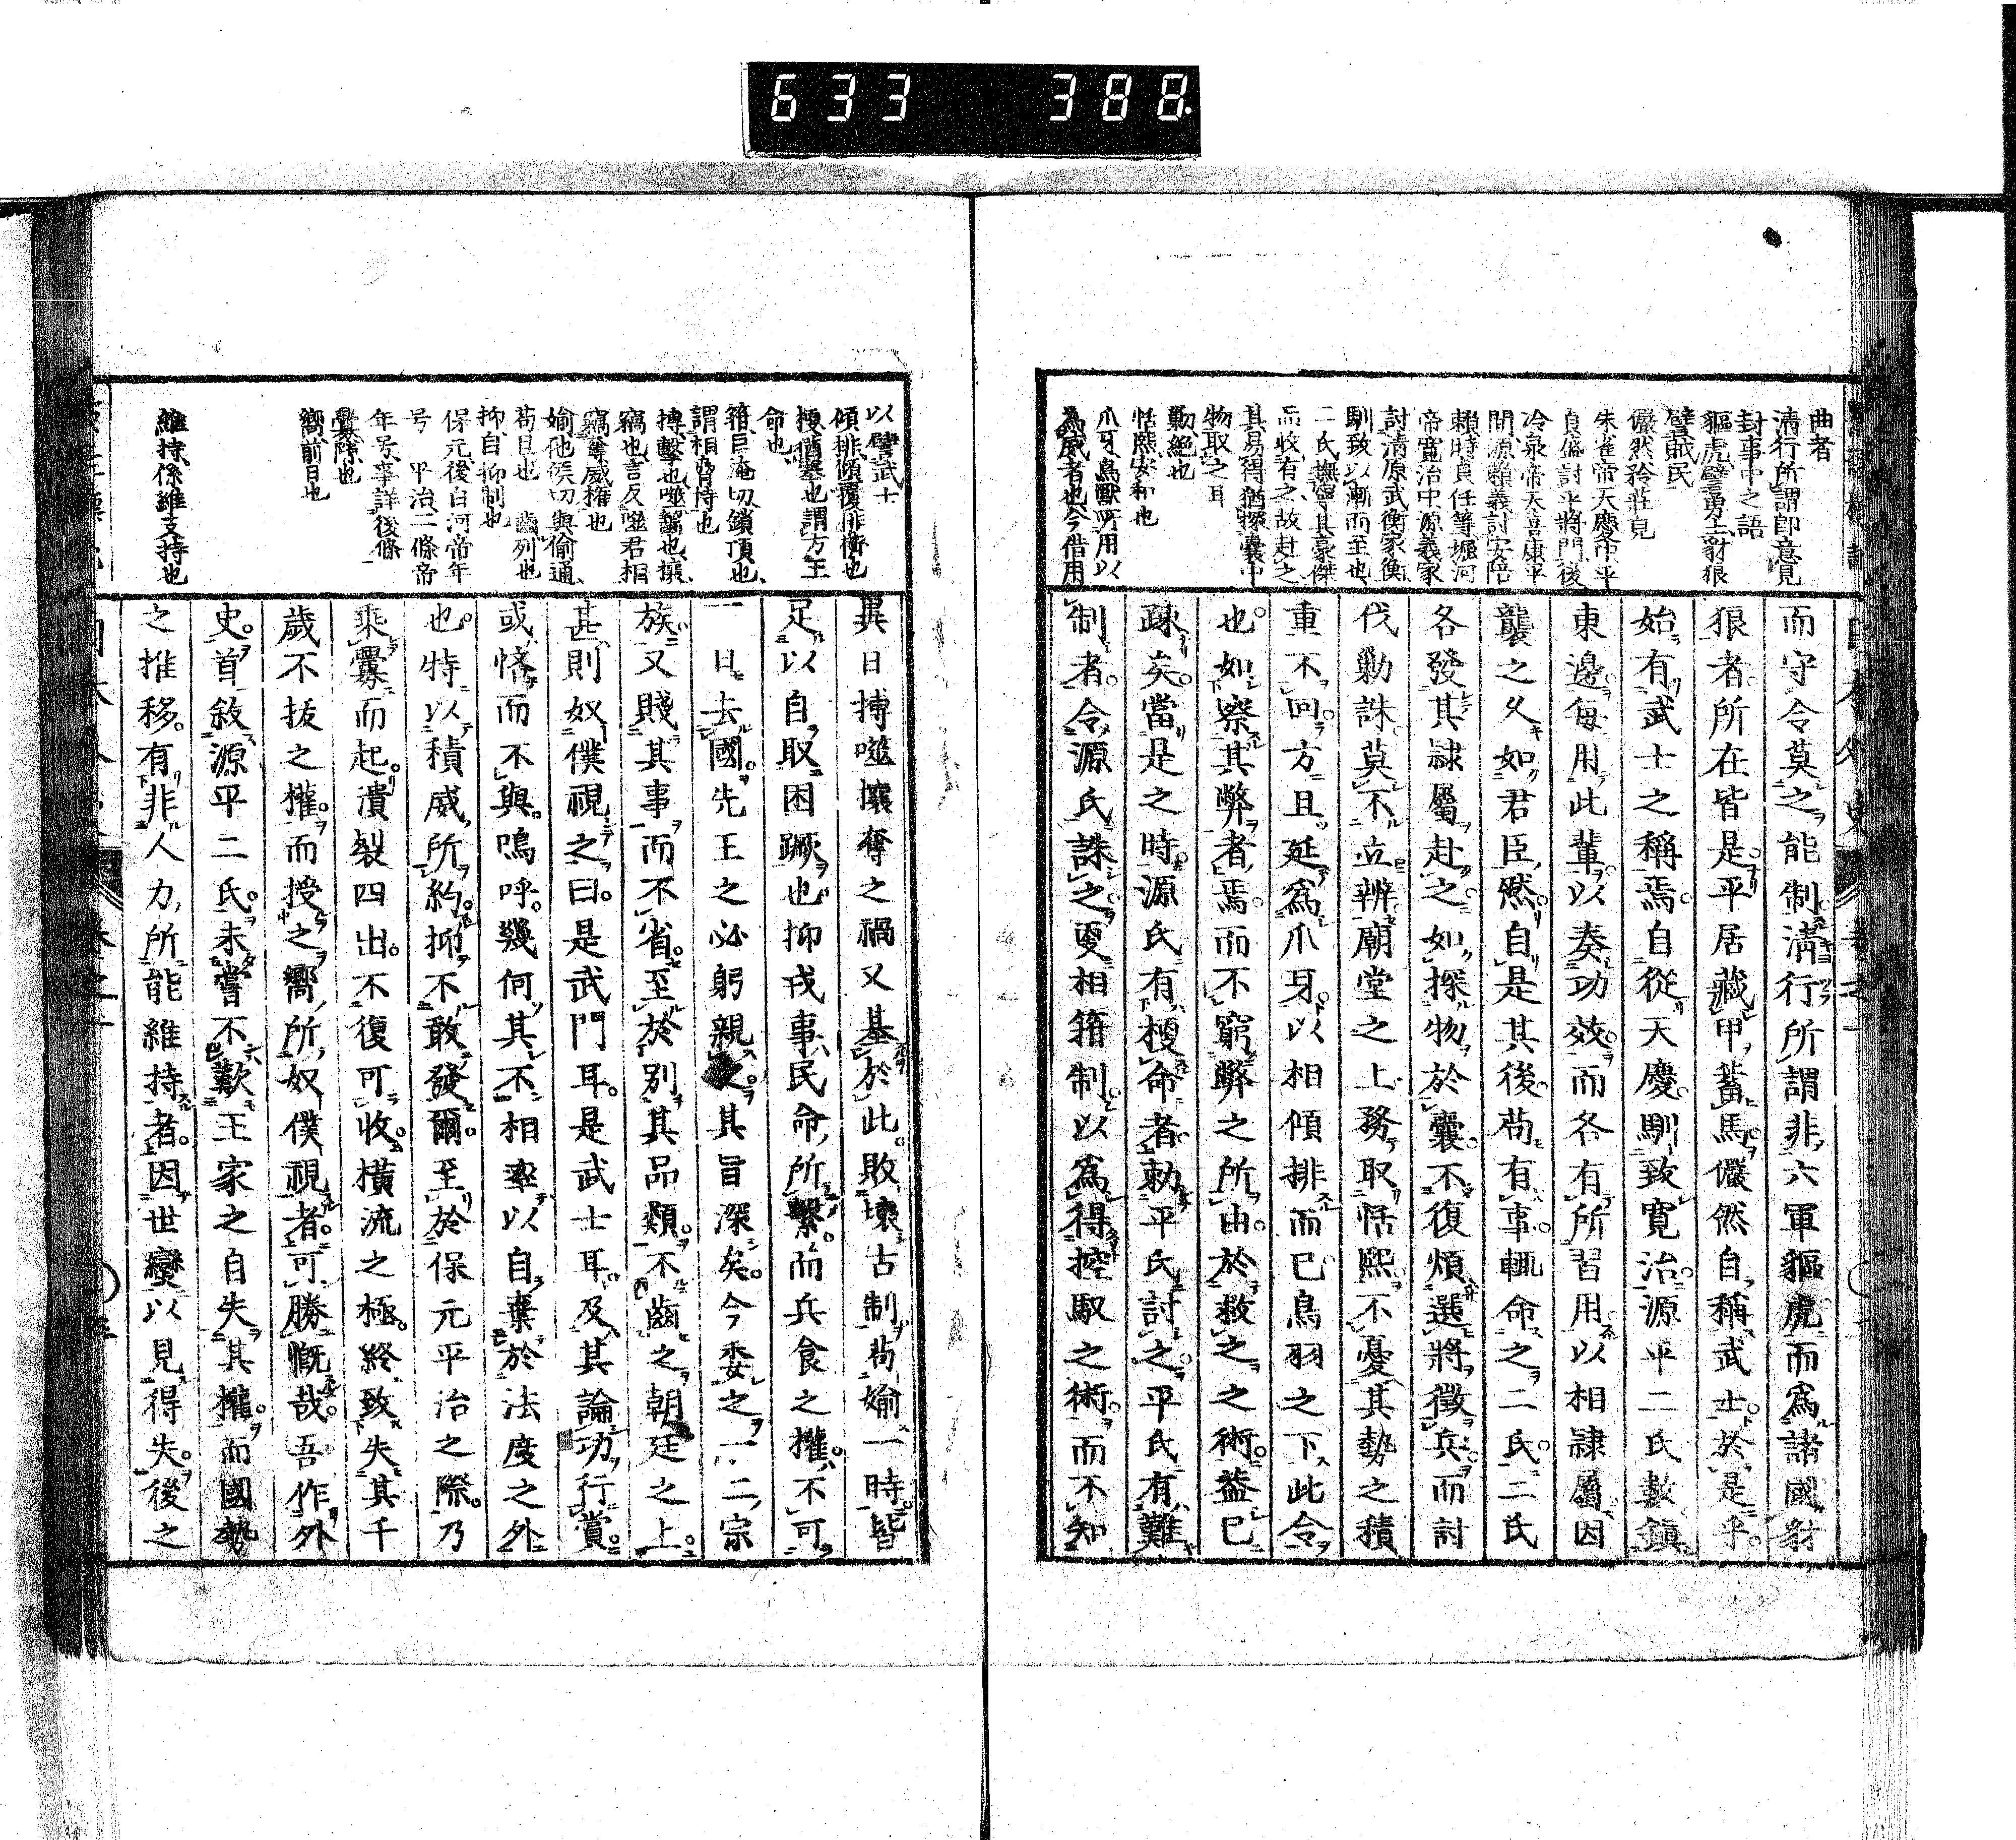 633 388
曲者
清行所謂即意見
封事中之語
貙虎譬勇士豺狼
譬賊民
儼然矜莊皃
朱雀帝天慶中平
貞盛討平將門後
冷泉帝天喜康平
間源賴義討安陪
賴時貞任等堀河
帝寬治中源義家
討清原武衡家衡
馴致以漸而至也
二氏撫育其豪傑
而收有之故赴之
其易得猶探囊中
物取之耳
勦絕也
恬熙安和也
爪牙鳥獸所用以
為威者也今借用
而守令莫之能制清行所謂非六軍貙虎而為諸國豺
狼者所在皆是平居藏甲蓄馬儼然自稱武士於是乎
始有武士之稱焉自從天慶馴致寬治源平二氏數鎮
東邊每用此輩以奏功效而各有所習用以相隸屬因
襲之久如君臣然自是其後苟有事輒命之二氏二氏
各發其隸屬赴之如探物於囊不復煩選將徵兵而討
伐勦誅莫不立辨廟堂之上務取恬熙不憂其勢之積
重不回方且延為爪牙以相傾排而已鳥羽之下此令
也如察其弊者焉而不窮弊之所由於救之之術蓋已
疎矣當是之時源氏有梗命者勅平氏討之平氏有難
制者令源氏誅之更相箝制以為得控馭之術而不知
以譬武士
傾排傾覆排擠也
梗猶塞也謂方王
命也
箝巨淹切鎖頂也
謂相脅持也
搏擊也噬齧也攘
竊也言反噬君相
竊奪威權也
媮他侯切與偷通
苟且也 齒列也
抑自抑制也
保元後白河帝年
号 平治二條帝
年号事詳後條
釁隙也
嚮前日也
維持係維支持也
異日搏噬攘奪之禍又基於此敗壞古制苟媮一時皆
足以自取困蹶也抑戎事民命所繫而兵食之權不可
一日去國先王之必躬親之其旨深矣今委之一二宗
族又賤其事而不省至於別其品類不齒之朝廷之上
甚則奴僕視之曰是武門耳是武士耳及其論功行賞
或恡而不與嗚呼幾何其不相率以自棄於法度之外
也特以積威所約抑不敢發爾至於保元平治之際乃
乘釁而起潰裂四出不復可收橫流之極終致失其千
歲不拔之權而授之嚮所奴僕視者可勝慨哉吾作外
史首敘源平二氏未嘗不歎王家之自失其權而國勢
之推移有非人力所能維持者因世變以見得失後之